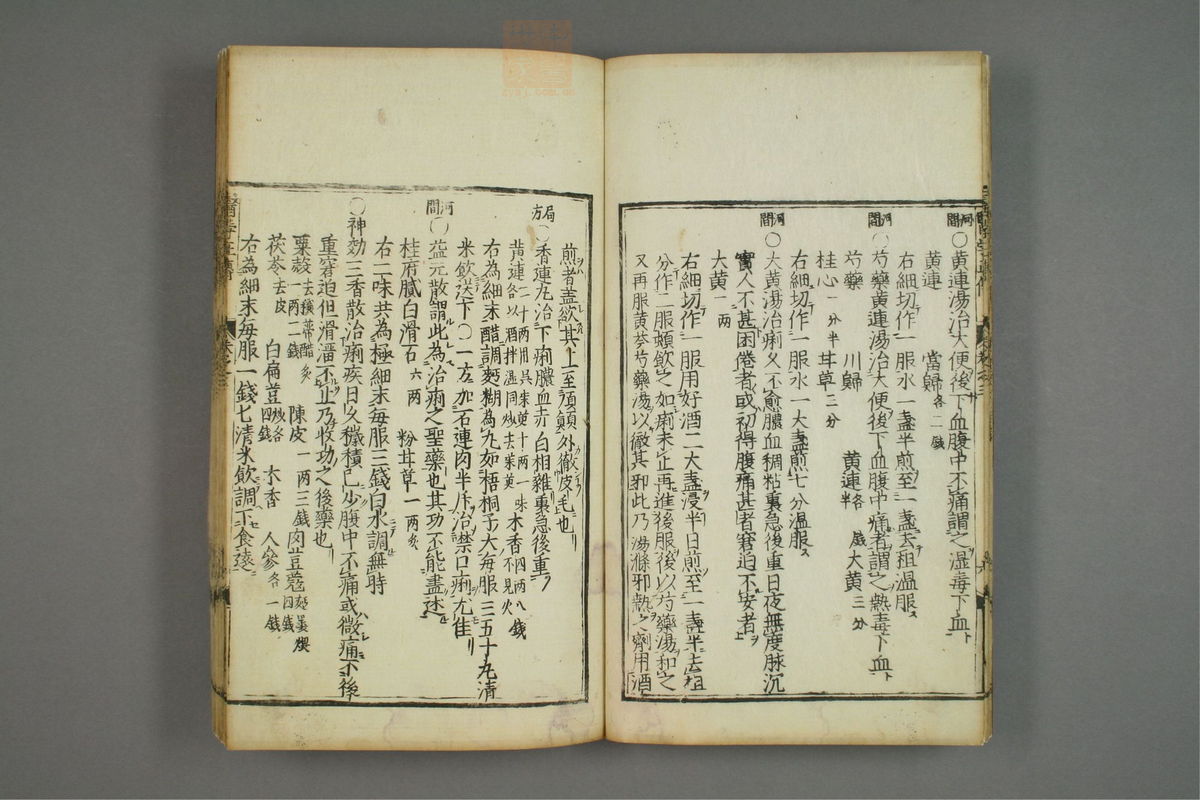 河間
○黃連湯治大便後下血腹中不痛謂之湿毒下血
黃連　當歸各二錢
右細切作一服水一盞半煎至一盞去粗温服
河間
○芍藥黃連湯治大便後下血腹中痛者謂之熱毒下血
芍藥　川歸　黃連各半錢　大黃三分
桂心一分半　甘草二分
右細切作一服水一大盞煎七分温服
河間
○大黃湯治痢久不愈膿血稠粘裏急後重日夜無度脉沉
實人不甚困倦者或初得腹痛甚者窘迫不安者
大黃一兩
右細切作一服用好酒二大盞浸半日煎至一盞半去粗
分作二服頻飲之如痢未止再進後服後以芍藥湯和之
又再服黃芩芍藥湯以徹其邪此乃湯滌邪熱之劑用酒
煎者盖欲其上至頭頂外徹皮毛也
局方
○香連丸治下痢膿血赤白相雜裏急後重
黃連二十兩用呉茱萸十兩一味各以酒拌湿同炒去茱萸　木香四兩八錢不見火
右為細末醋調麪糊為丸如梧桐子大每服三五十丸清
米飲送下○一方加石連肉半斤治禁口痢尤佳
河間
○益元散謂此為治痢之聖藥也其功不能盡述
桂府膩白滑石六兩　粉甘草一兩炙
右二味共為極細末每服三錢白水調無時
○神効三香散治痢疾日久穢積已少腹中不痛或微痛不後
重窘迫但滑溜不止乃收功之後藥也
粟殼去穰蒂醋炙一兩二錢　陳皮一兩三錢　肉荳蔻麪裹煨四錢
茯苓去皮　白扁荳炒各四錢　木香　人參各一錢
右為細末每服一錢七清米飲調下食遠